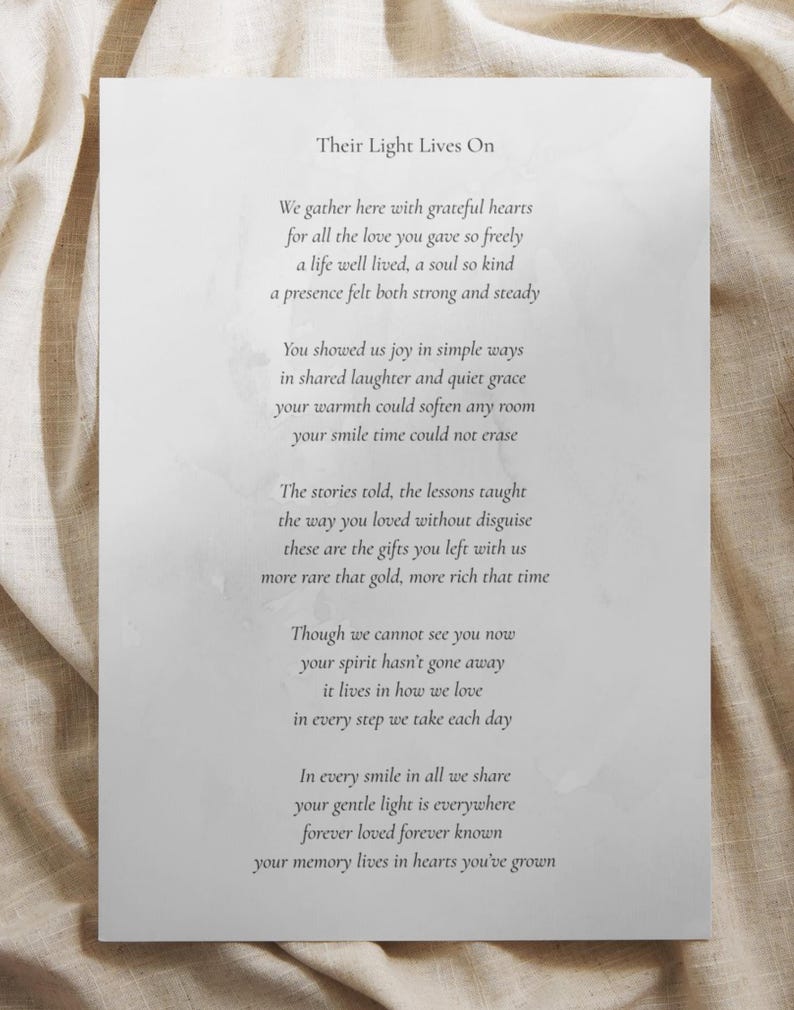 Their Light Lives On
We gather here with grateful hearts
for all the love you gave so freely
a life well lived, a soul so kind
a presence felt both strong and steady
You showed us joy in simple ways
in shared laughter and quiet grace
your warmth could soften any room
your smile time could not erase
The stories told, the lessons taught
the way you loved without disguise
these are the gifts you left with us
more rare that gold, more rich that time
Though we cannot see you now
your spirit hasn't gone away
it lives in how we love
in every step we take each day
In every smile in all we share
your gentle light is everywhere
forever loved forever known
your memory lives in hearts you've grown